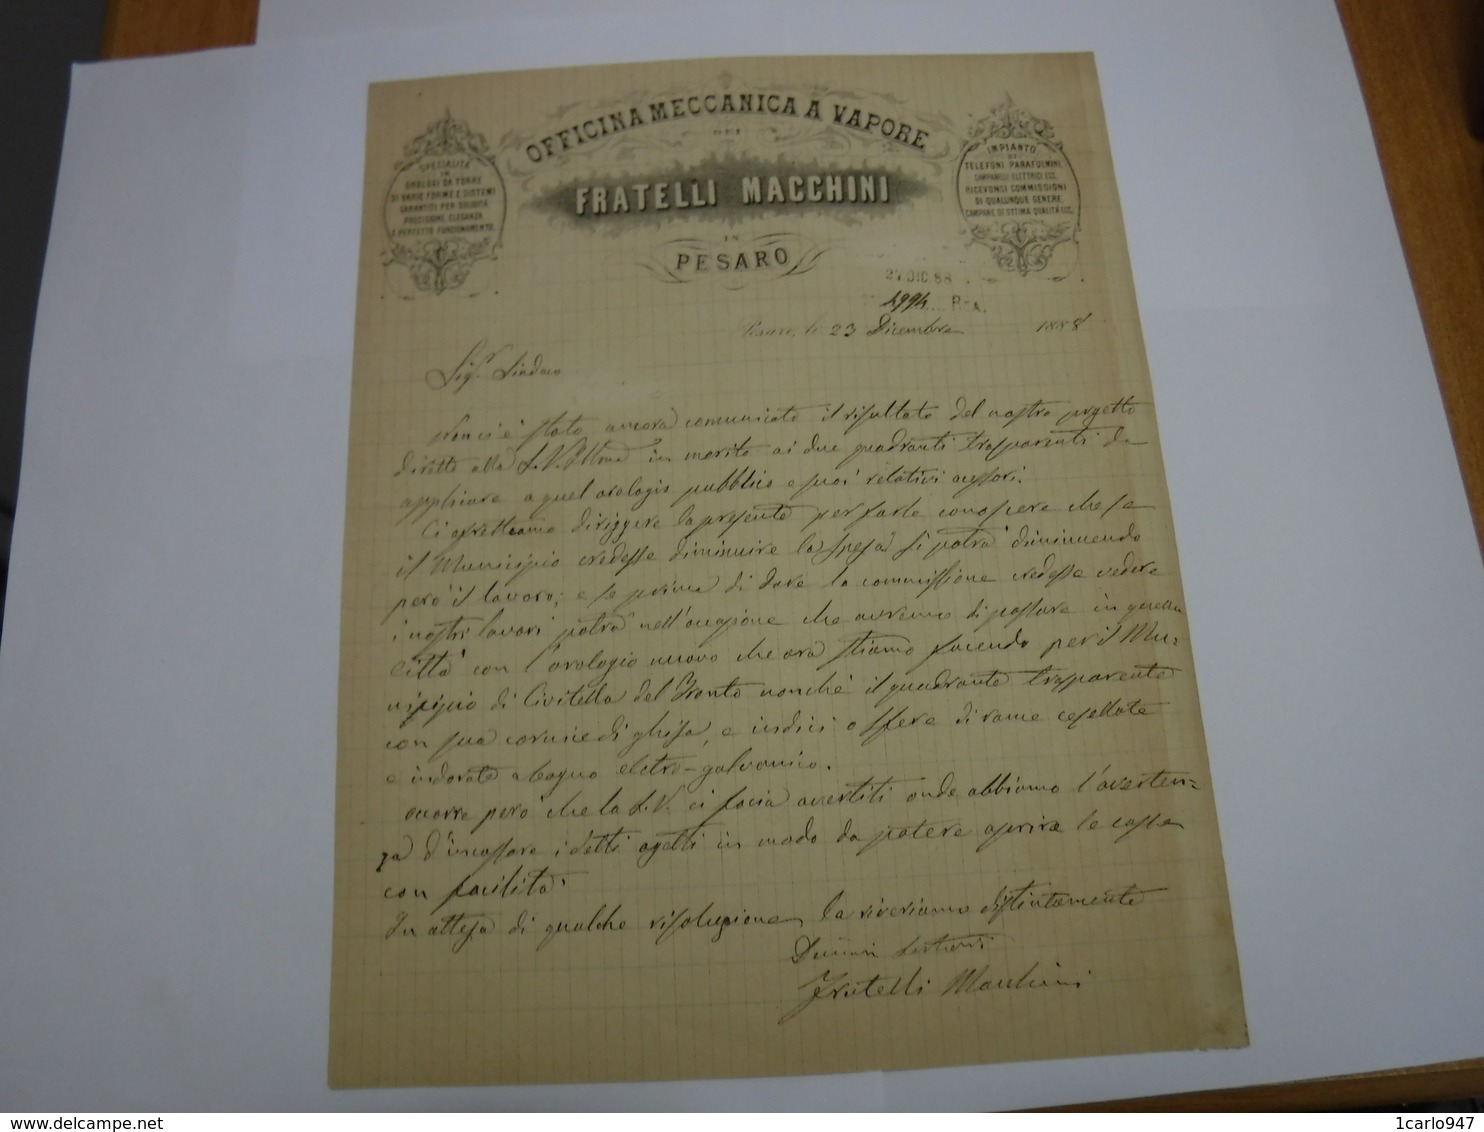 OFFICINA MECCANICA A VAPORE
DEI
FRATELLI MACCHINI
IN
PESARO
SPECIALITÀ
IN
OROLOGI DA TORRE
DI VARIE FORME E SISTEMI
GARANTITI PER SOLIDITÀ
PRECISIONE ELEGANZA
E PERFETTO FUNZIONAMENTO.
IMPIANTO
DI
TELEFONI PARAFULMINI
CAMPANELLI ELETTRICI ECC.
RICEVONSI COMMISSIONI
DI QUALUNQUE GENERE
CAMPANE DI OTTIMA QUALITÀ ECC.
27 DIC 88
4994
Pesaro, li 23 Dicembre 1888
Sigr. Sindaco
Non ci è stato ancora comunicato il risultato del nostro progetto
diretto alla S.V. Illma in merito ai due quadranti trasparenti da
applicare a quel orologio pubblico e suoi relativi accessori.
Ci affrettiamo diriggere la presente per farle conoscere che se
il Municipio credesse diminuire la spesa si potrà diminuendo
però il lavoro; e se prima di dare la commissione credesse vedere
i nostri lavori potrà nell'occasione che avremo di passare in questa
città con l'orologio nuovo che ora stiamo facendo per il Mu=
nicipio di Civitella del Tronto nonchè il quadrante trasparente
con sua cornice di ghisa, e indici o sfere di rame cesellate
e indorate a bagno eletro-galvanico.
occorre però che la S.V. ci facia avertiti onde abbiamo l'averten=
za d'incassare i detti ogetti in modo da potere aprire le casse
con facilità.
In attesa di qualche risoluzione la riveriamo distintamente
Fratelli Macchini
1carlo947
www.delcampe.net